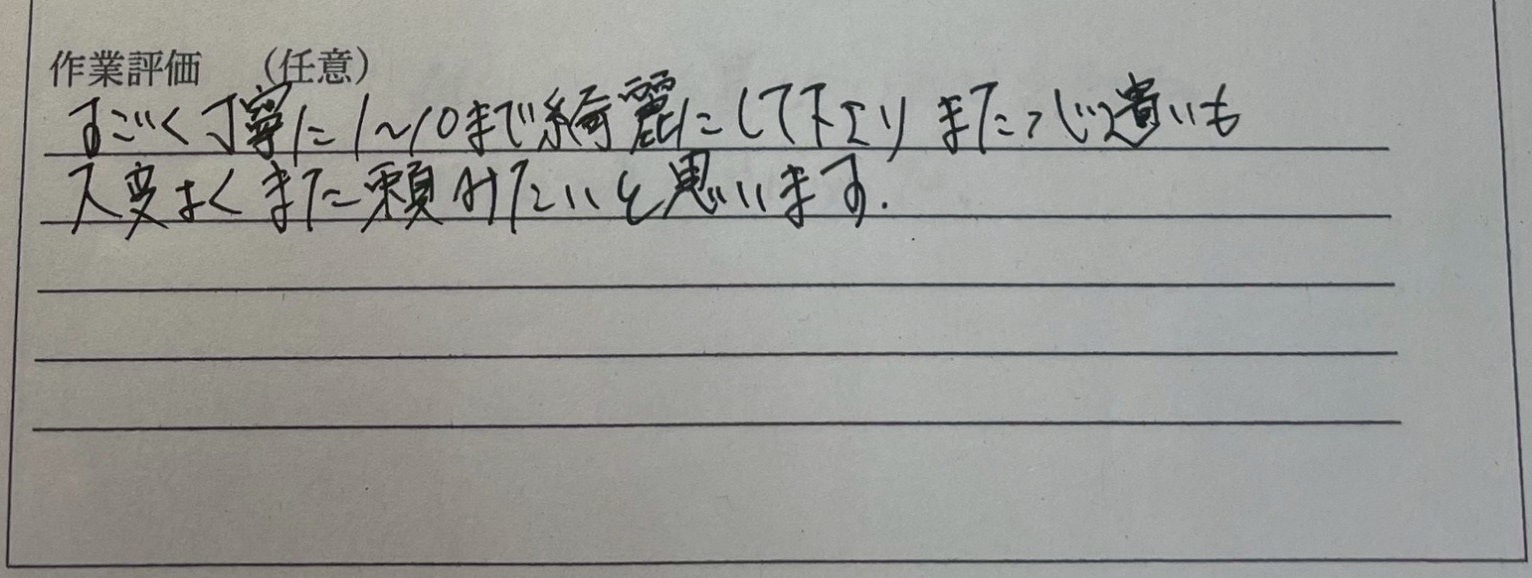 作業評価 （任意）
すごく丁寧に1〜10まで綺麗にして下さり また心遣いも
大変よくまた頼みたいと思います.